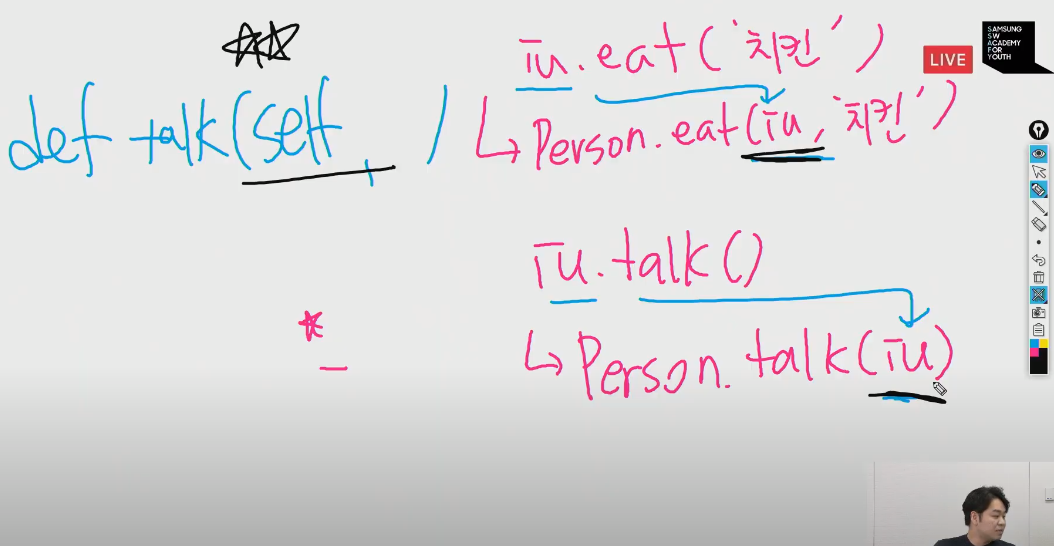 def talk(self, )
iu.eat('치킨')
Person.eat(iu, '치킨')
iu.talk()
Person.talk(iu)
LIVE
SAMSUNG
SW
ACADEMY
FOR
YOUTH